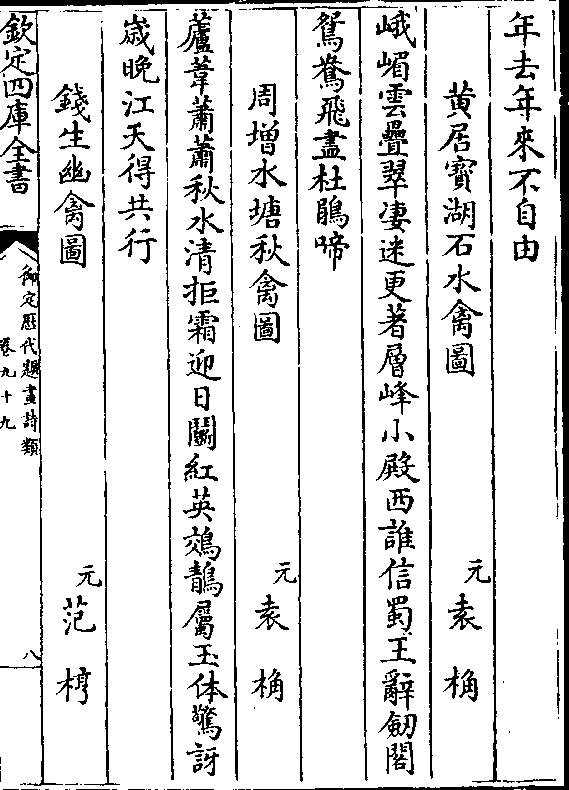 年去年來不自由
黄居寳湖石水禽圖　元袁桷
峨嵋雲疊翠凄迷更著層峰小殿西誰信蜀王辭劒閣
鴛鴦飛盡杜鵑啼
周增水塘秋禽圖　元袁桷
蘆葦蕭蕭秋水清拒霜迎日鬬紅英鵁鶄屬玉休驚訝
嵗晩江天得共行
錢生幽禽圖　元范梈
欽定四庫全書　御定歴代題畫詩類　卷九十九　八